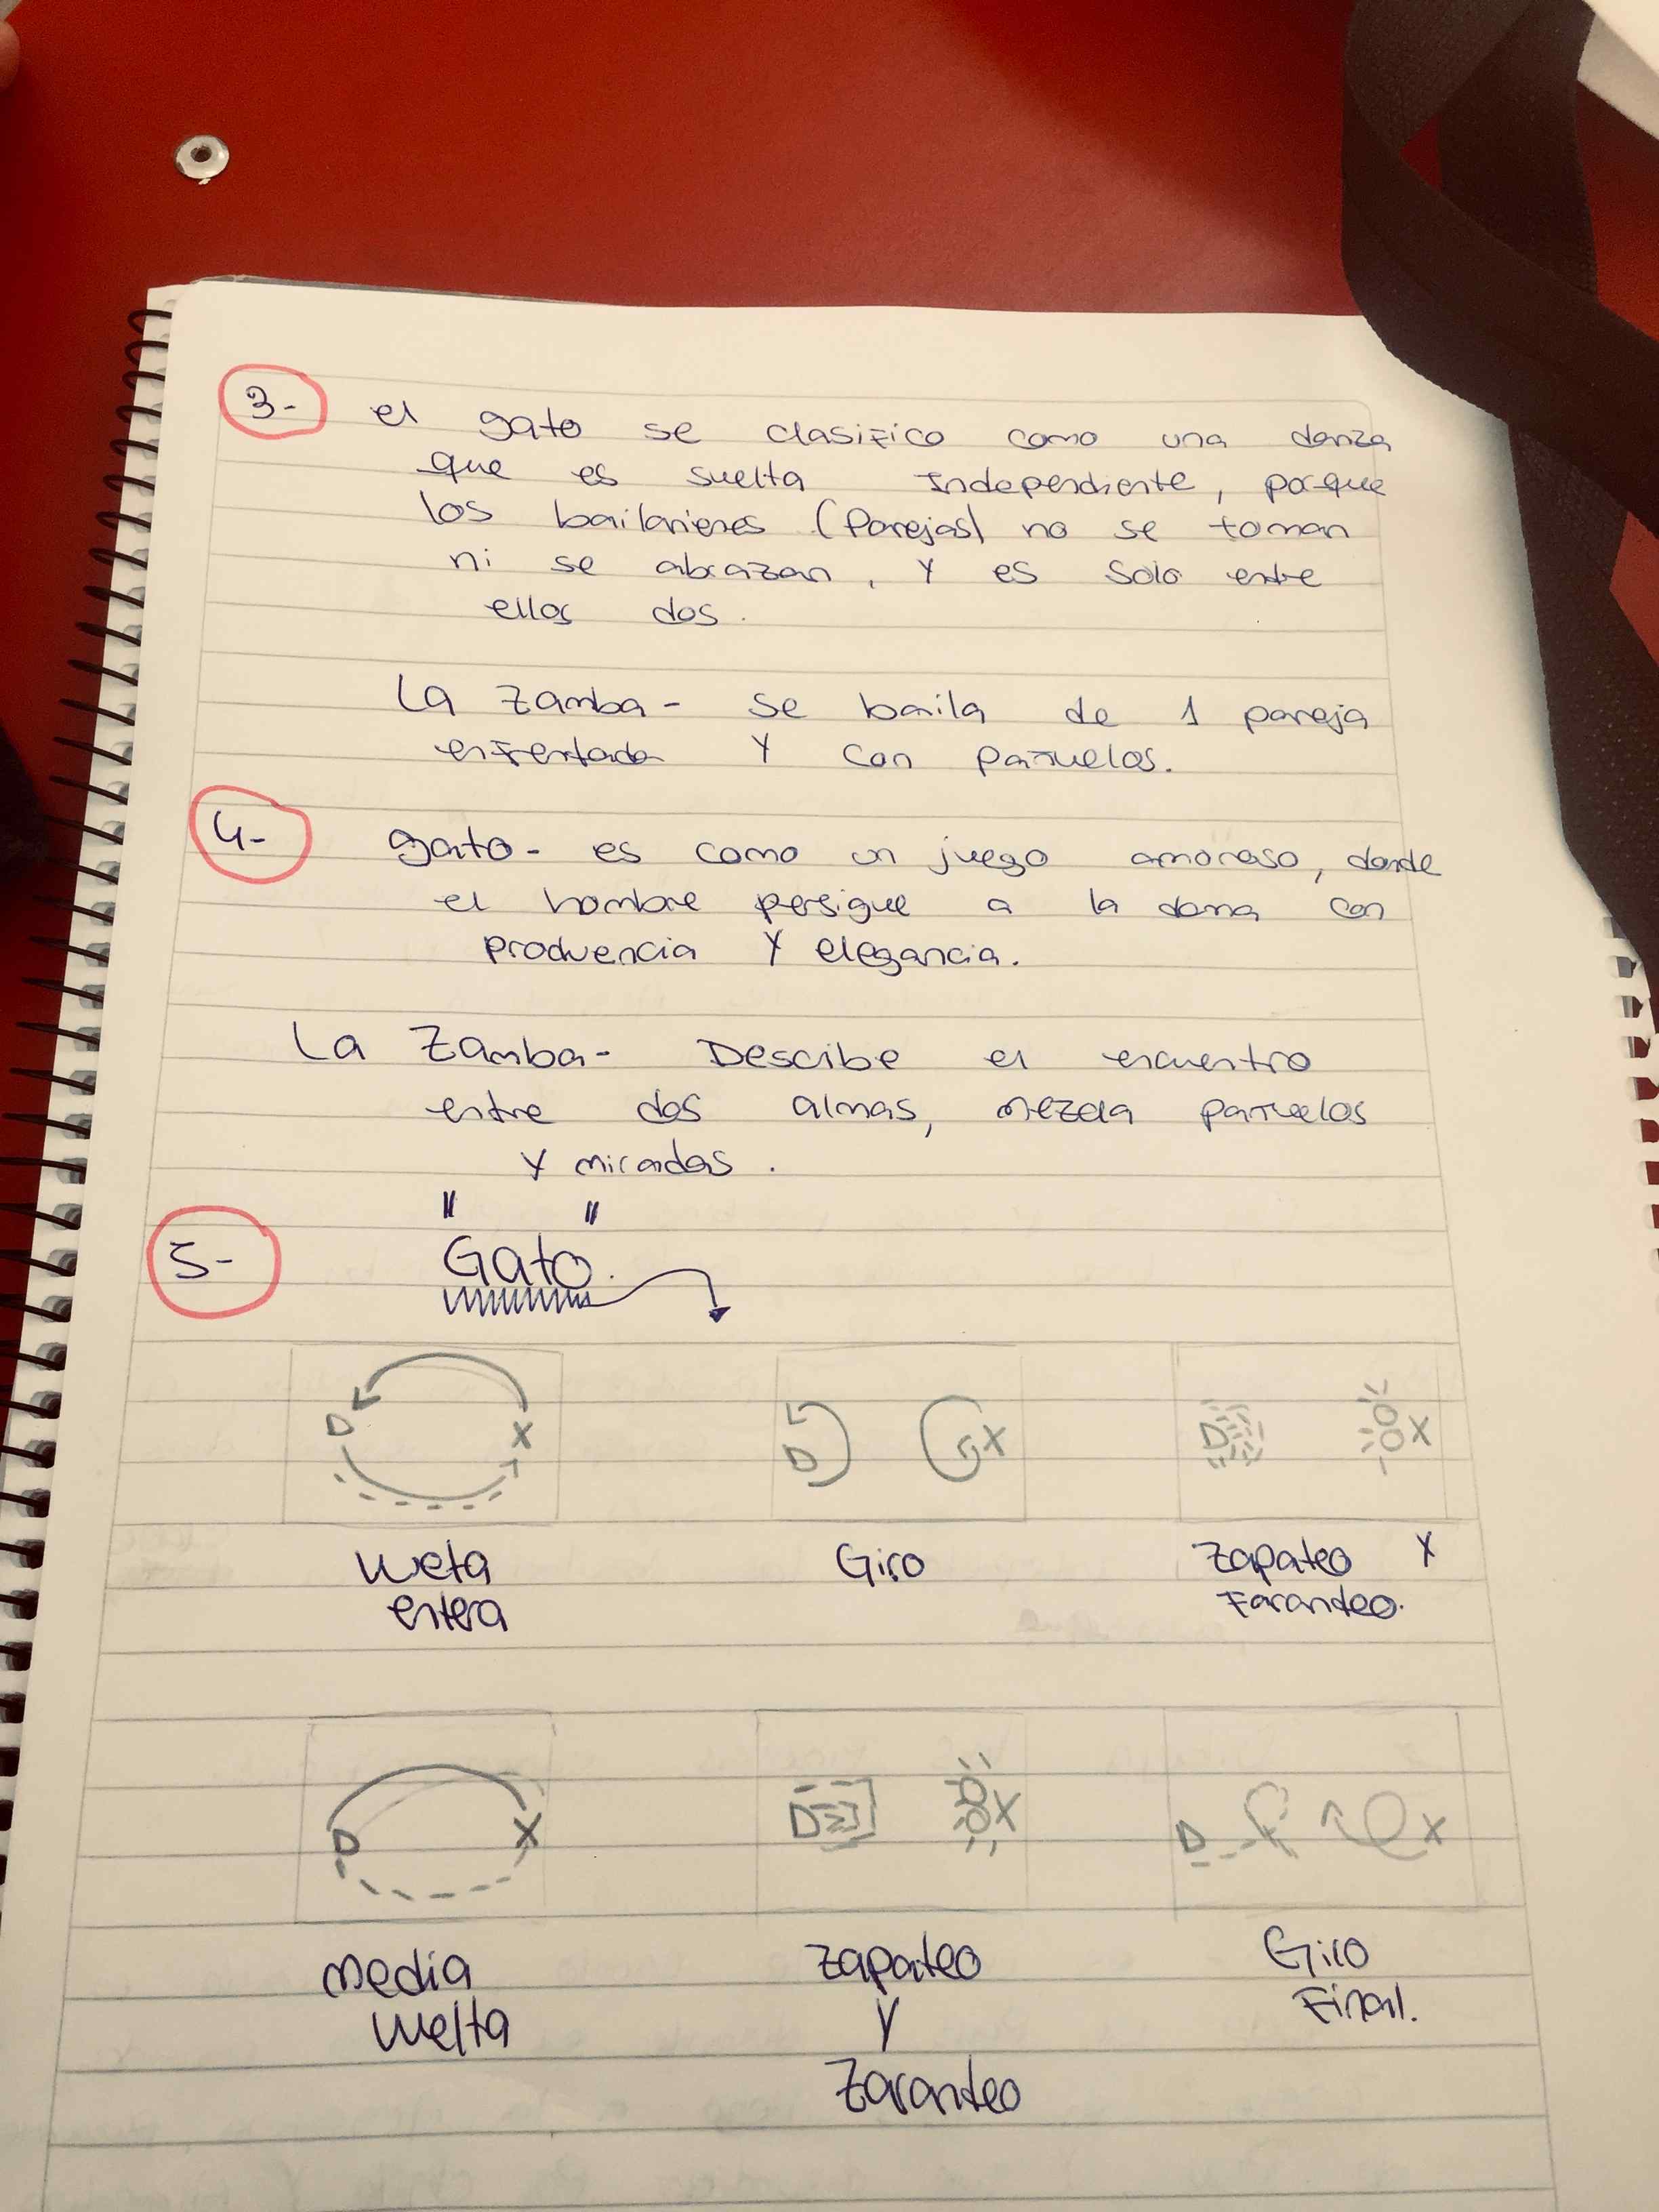 3- el gato se clasifico como una danza
que es suelta Independiente, porque
los bailarienes (Parejas) no se toman
ni se abrazan, y es solo entre
ellos dos.
La Zamba- se baila de 1 pareja
enfrentada y con pañuelos.
4- gato- es como un juego amoroso, donde
el hombre persigue a la dama con
produencia y elegancia.
La Zamba- Describe el encuentro
entre dos almas, mezcla pañuelos
y miradas.
5- "Gato"
D X D X D X
vueta Giro Zapateo y
entera Farandeo.
D X D X D X
media zapateo Giro
vuelta y Final.
Zarandeo